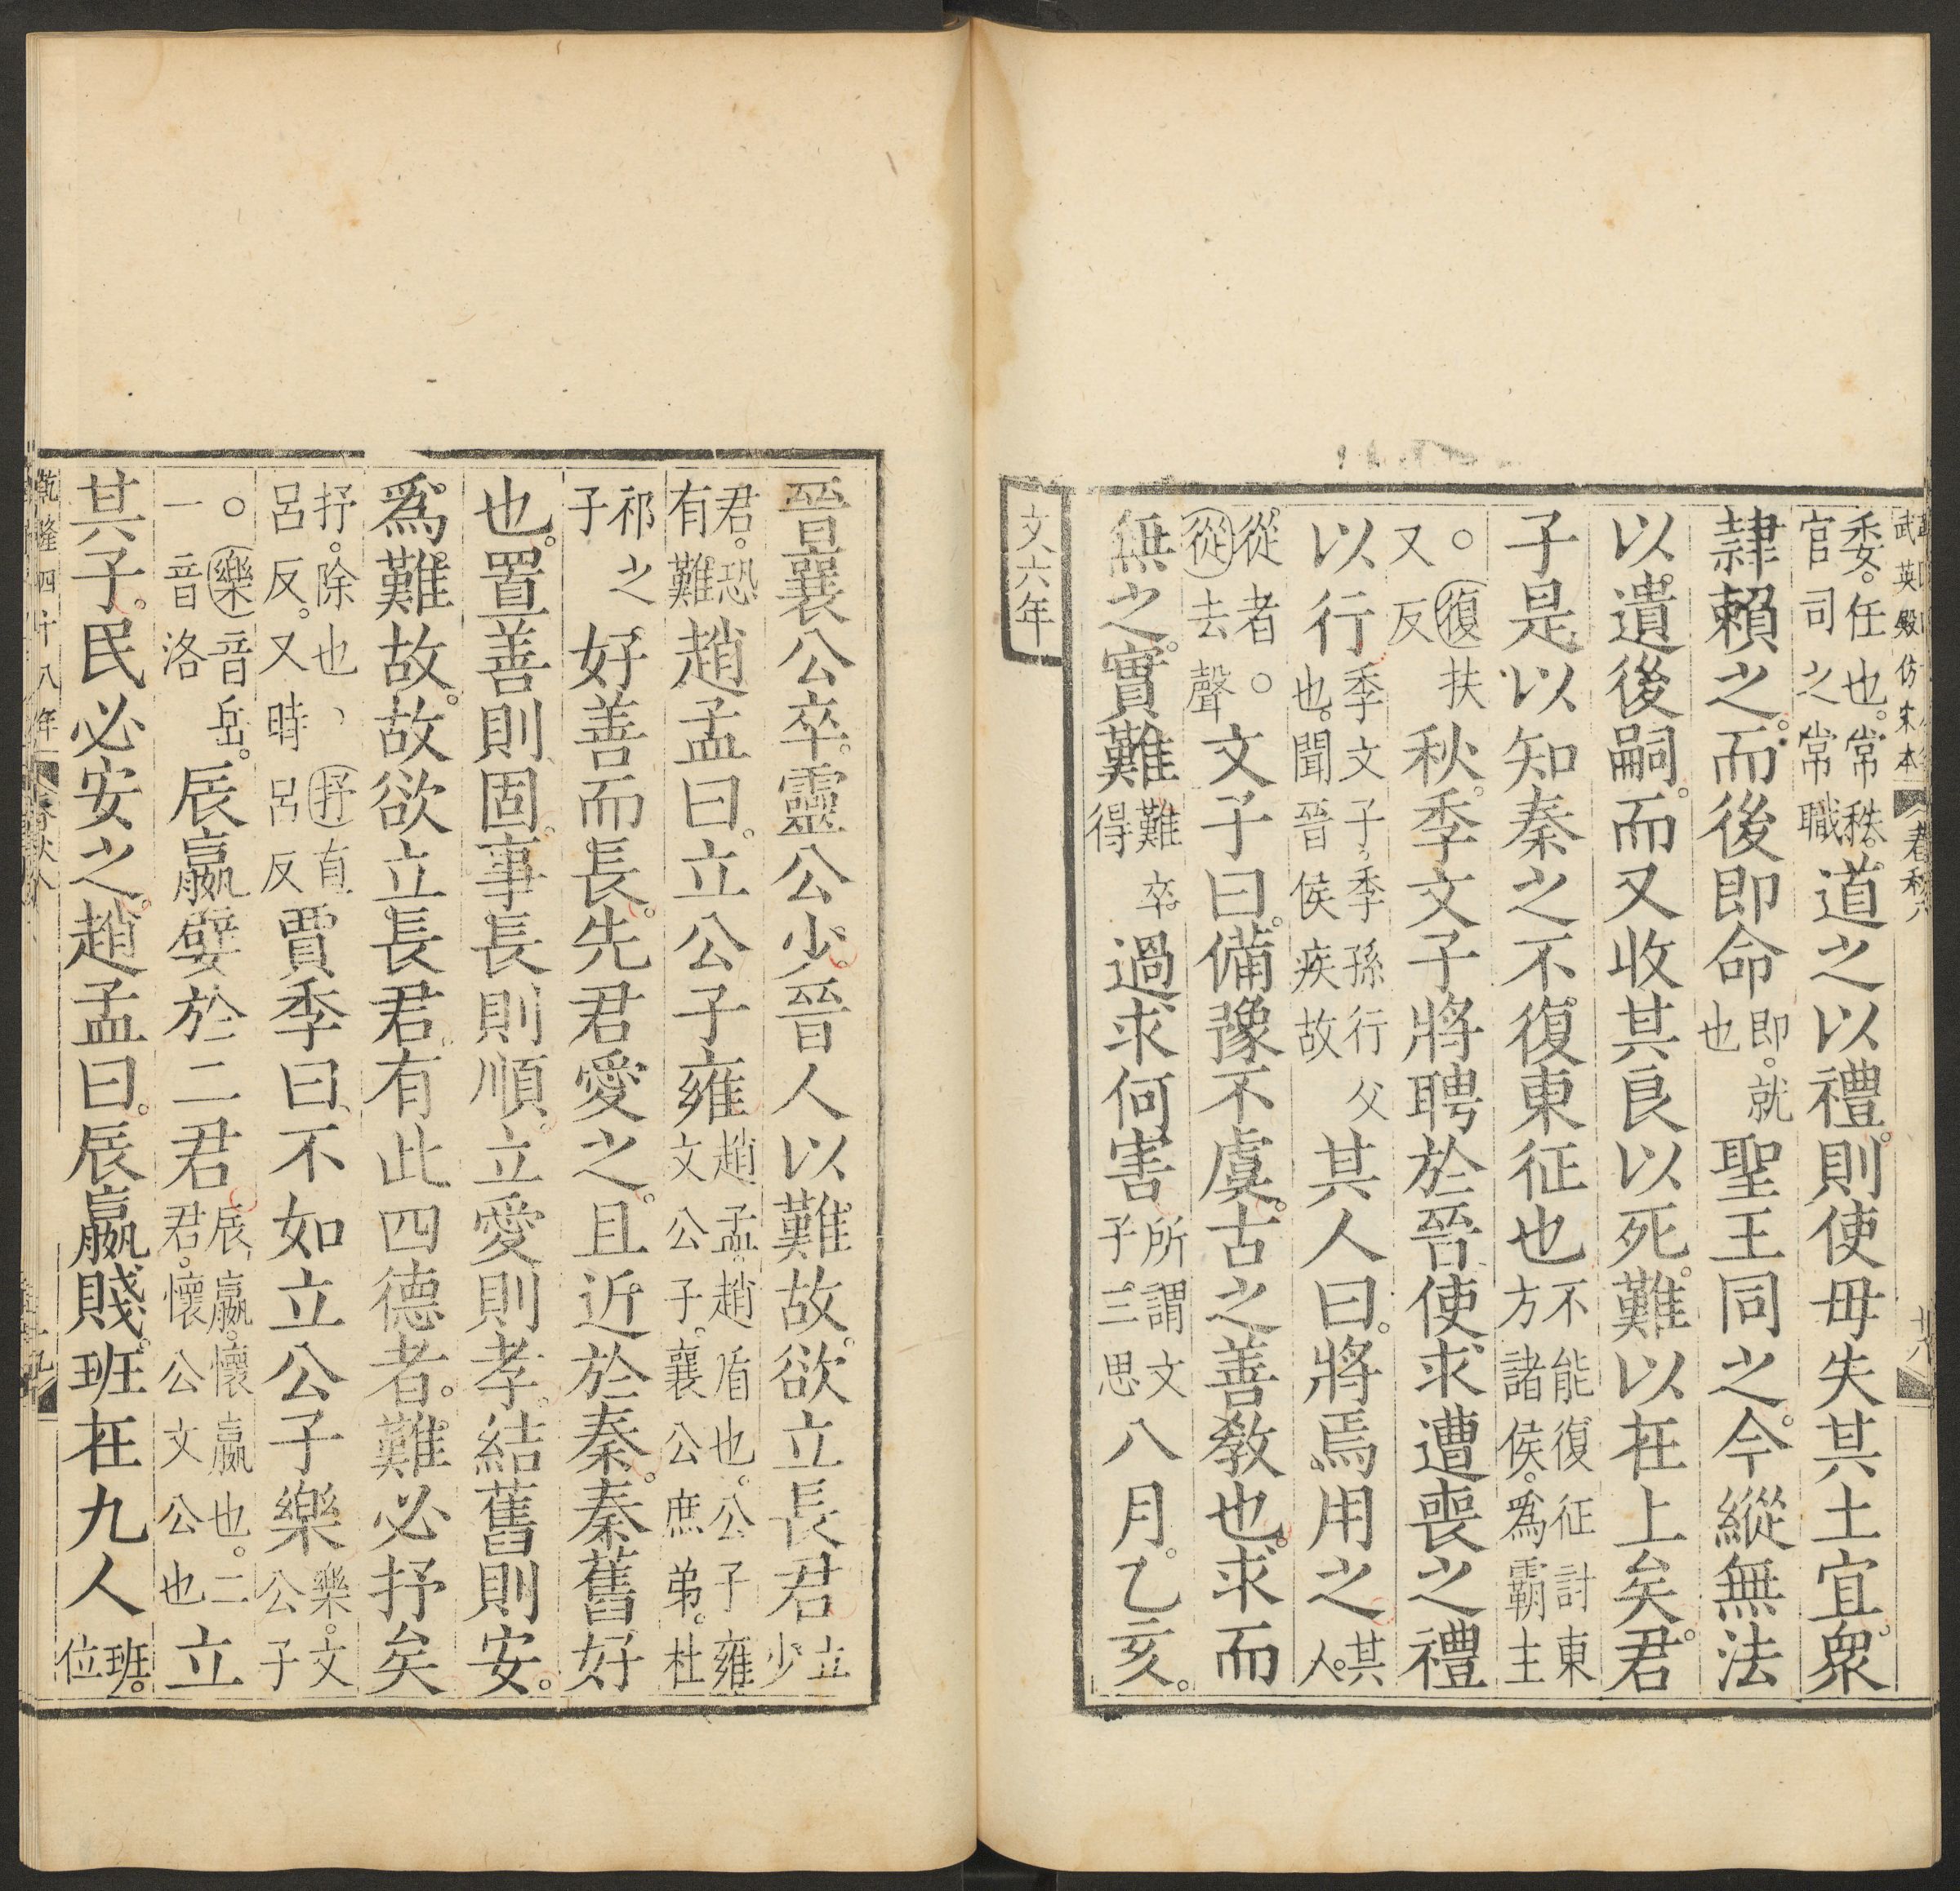 武英殿仿宋本 春秋八 廿八
委。任也。常秩。官司之常職道之以禮。則使毋失其土宜。衆
隸賴之。而後即命即。就也聖王同之。今縱無法
以遺後嗣。而又收其良以死。難以在上矣。君
子是以知秦之不復東征也不能復征討東方諸侯。爲霸主
○復扶又反秋。季文子將聘於晉。使求遭喪之禮
以行季文子、季孫行父也。聞晉侯疾故其人曰。將焉用之其人。
從者。○從去聲文子曰。備豫不虞。古之善教也。求而
無之。實難難卒。得過求何害所謂文子。三思八月。乙亥。
文六年
晉襄公卒。靈公少。晉人以難故。欲立長君立少
君。恐有難趙孟曰。立公子雍趙孟。趙盾也。公子雍文公子。襄公庶弟。杜
祁之子好善而長。先君愛之。且近於秦。秦舊好
也。置善則固。事長則順。立愛則孝。結舊則安。
爲難故。故欲立長君。有此四德者。難必抒矣
抒。除也、抒直呂反。又時呂反賈季曰、不如立公子樂樂。文公子
○樂音岳。一音洛辰嬴嬖於二君。辰、嬴。懷嬴也。二君。懷公文公也立
其子。民必安之。趙孟曰。辰嬴賤。班在九人班。位
乾隆四十八年 春秋八